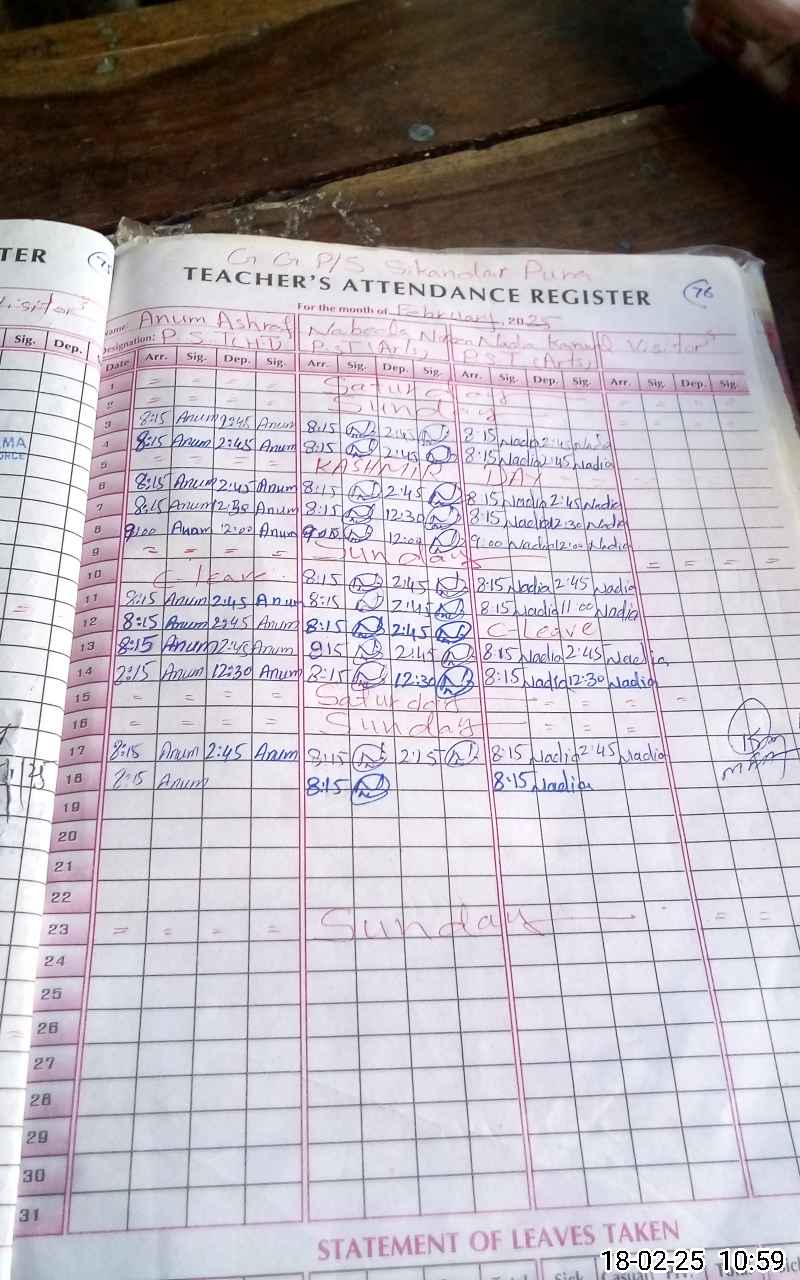 TER
G G P/S Sikandar Pura
TEACHER'S ATTENDANCE REGISTER 76
For the month of February 2025
Name: Anum Ashraf Nabeela Nadia Kanwal Visitor's
Designation: P.S.T (Arts) P.S.T (Arts)
Sig. Dep.
Date Arr. Sig. Dep. Sig. Arr. Sig. Dep. Sig. Arr. Sig. Dep. Sig. Arr. Sig. Dep. Sig.
1 = = = = Saturday
2 = = = = Sunday
3 8:15 Anum 2:45 Anum 8:15 2:45 8:15 Nadia 2:45 Nadia
4 8:15 Anum 2:45 Anum 8:15 2:45 8:15 Nadia 2:45 Nadia
5 = = = = KASHMIR DAY
6 8:15 Anum 2:45 Anum 8:15 2:45 8:15 Nadia 2:45 Nadia
7 8:15 Anum 12:30 Anum 8:15 12:30 8:15 Nadia 12:30 Nadia
8 9:00 Anum 12:00 Anum 9:00 12:00 9:00 Nadia 12:00 Nadia
9 = = = = Sunday = = = =
10 C-leave 8:15 2:45 8:15 Nadia 2:45 Nadia
11 8:15 Anum 2:45 Anum 8:15 2:45 8:15 Nadia 11:00 Nadia
12 8:15 Anum 2:45 Anum 8:15 2:45 C-Leave
13 8:15 Anum 2:45 Anum 8:15 2:45 8:15 Nadia 2:45 Nadia
14 8:15 Anum 12:30 Anum 8:15 12:30 8:15 Nadia 12:30 Nadia
15 = = = = Saturday = = = =
16 = = = = Sunday = = =
17 8:15 Anum 2:45 Anum 8:15 2:15 8:15 Nadia 2:45 Nadia
18 8:15 Anum 8:15 8:15 Nadia
19
20
21
22
23 = = = = Sunday = =
24
25
26
27
28
29
30
31
STATEMENT OF LEAVES TAKEN
18-02-25 10:59